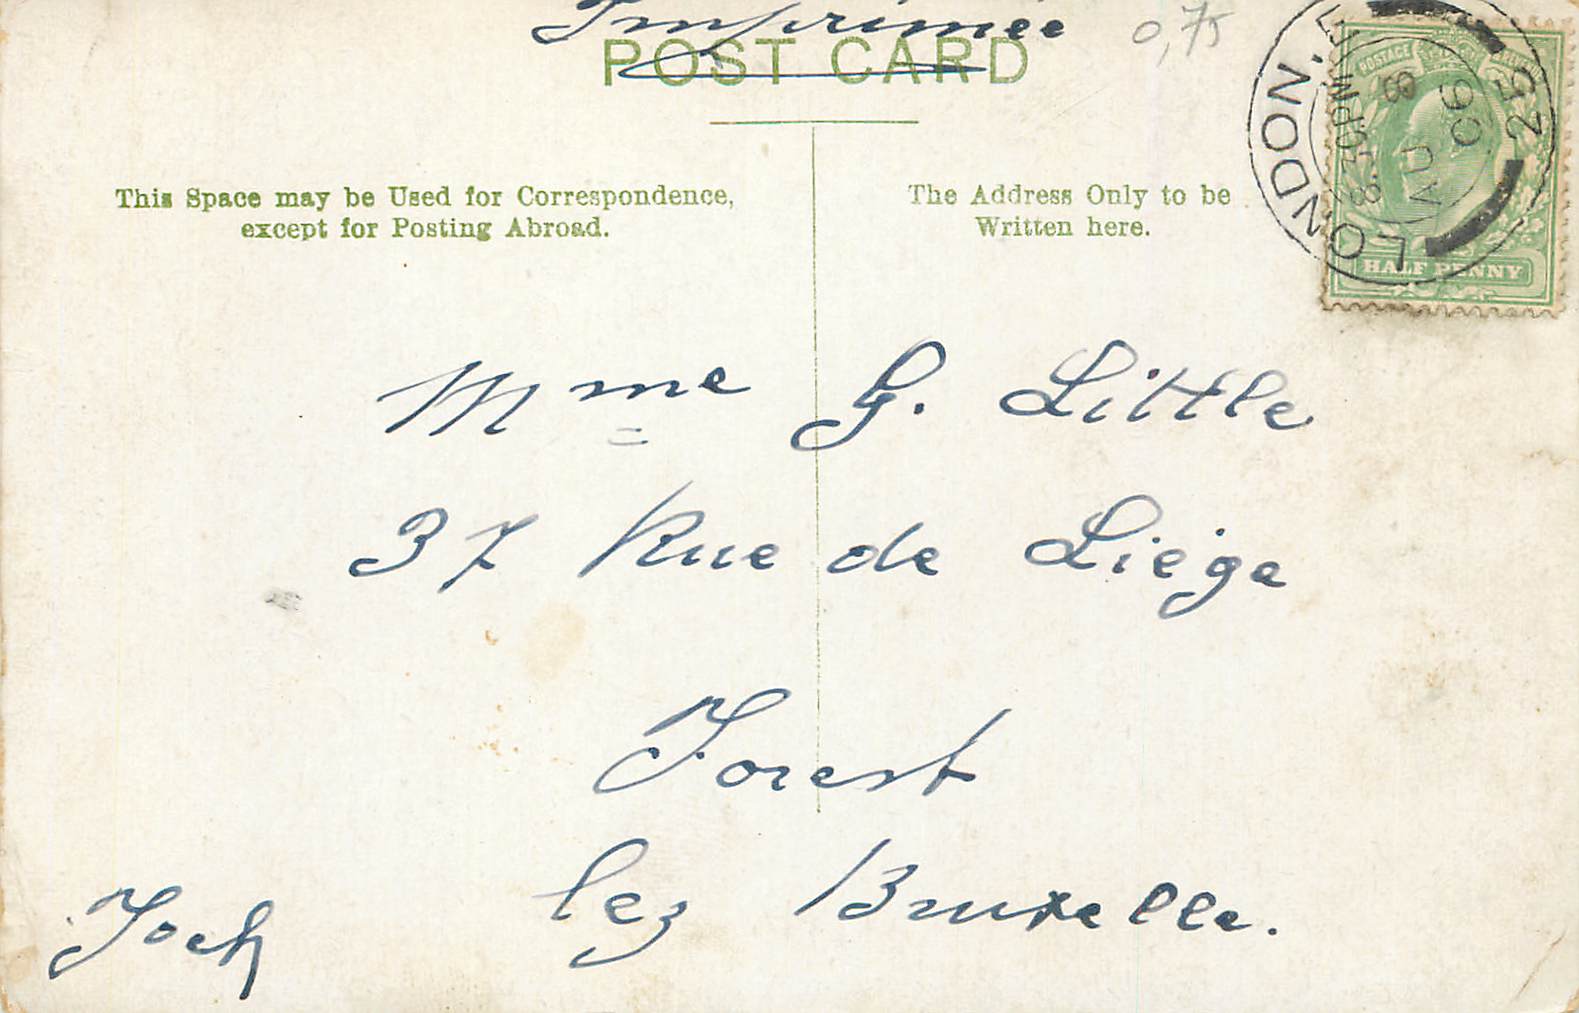 Imprimée
0,75
POST CARD
This Space may be Used for Correspondence,
except for Posting Abroad.
The Address Only to be
Written here.
LONDON, E
8.30PM
AU 9
06
25
POSTAGE
HALF PENNY
Mme G. Little
37 Rue de Liége
Forest
lez Bruxelle.
Jock